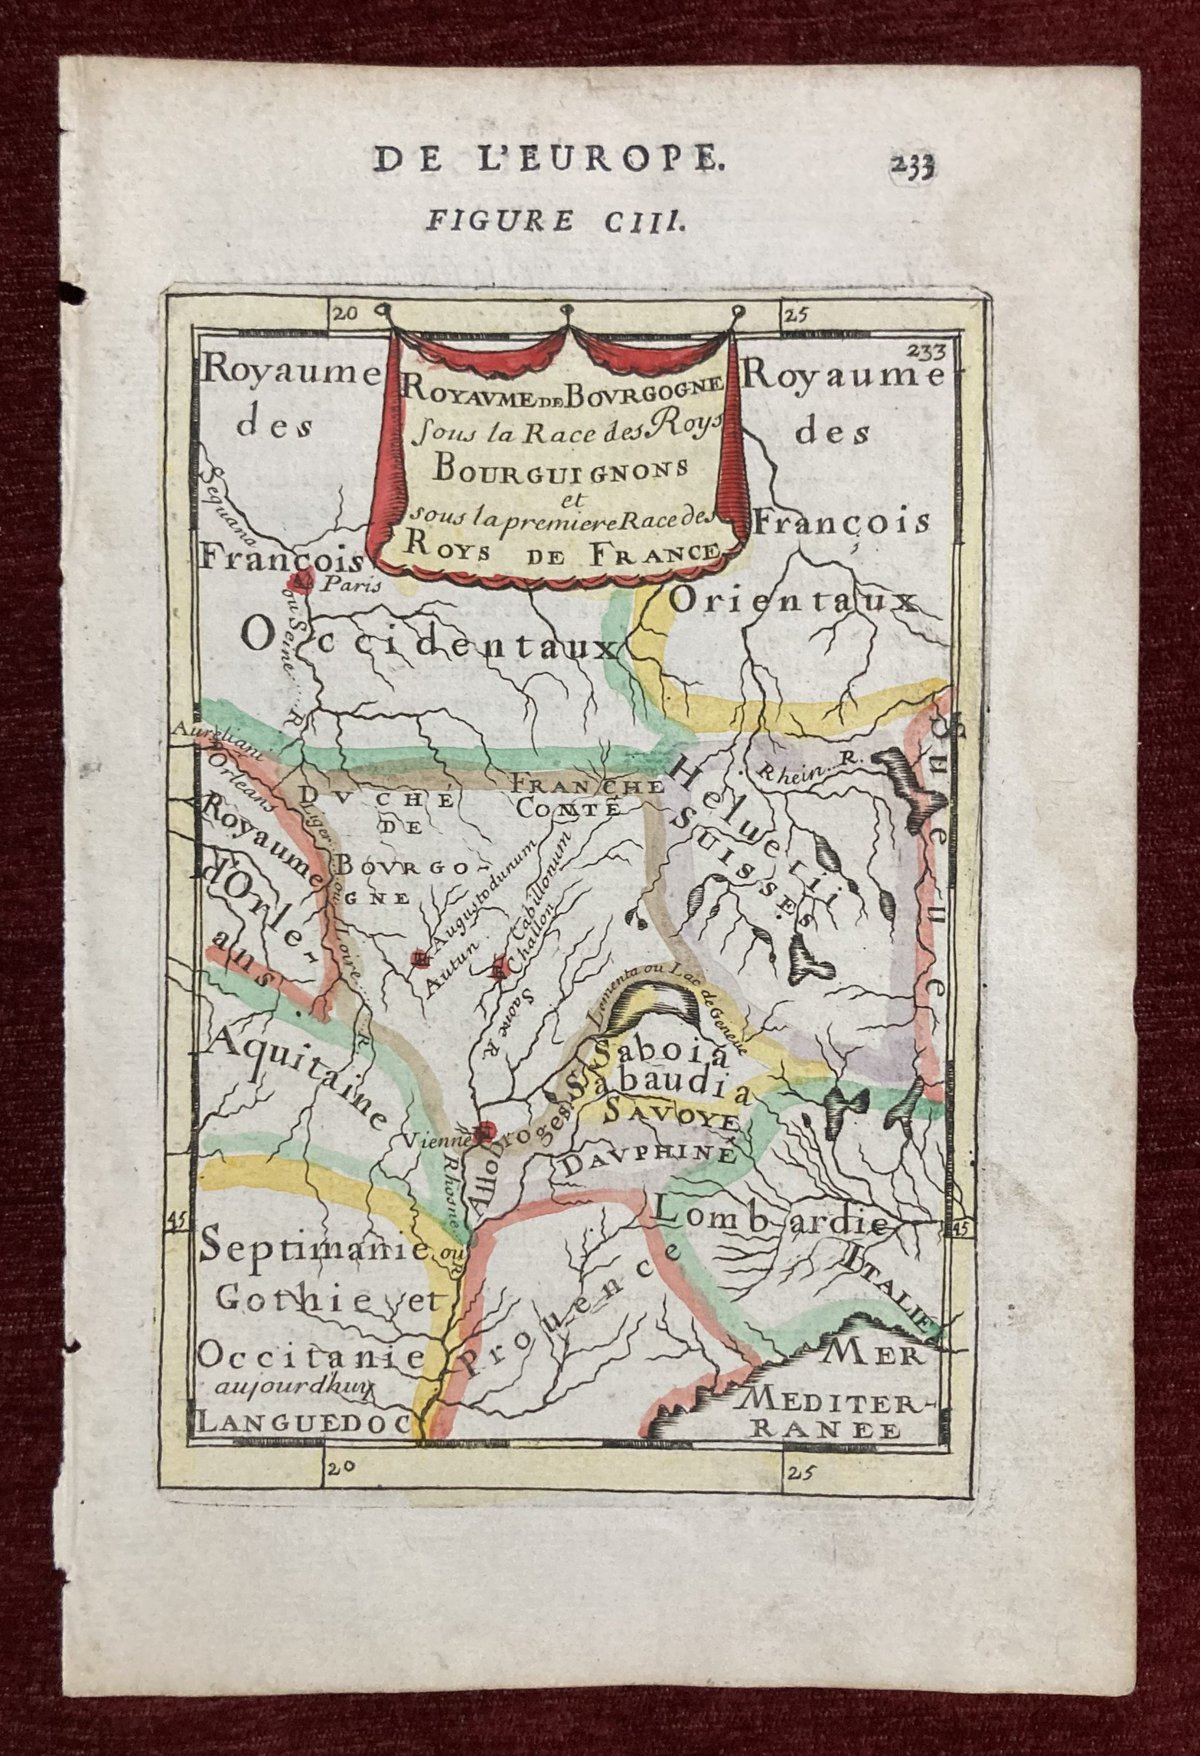 DE L'EUROPE.
233
FIGURE CIII.
20
25
233
ROYAVME DE BOVRGOGNE
sous la Race des Roys
BOURGUIGNONS
et
sous la premiere Race des
ROYS DE FRANCE
Royaume
des
François
Occidentaux
Royaume
des
François
Orientaux
Sequana
ou Seine R
Paris
Aureliani
Orleans
Royaume
d'Orle-
ans
Liger ou Loire R
DVCHÉ
DE
BOVRGO-
GNE
FRANCHE
COMTÉ
Augustodunum
Autun
Cabillonum
Challon
Saone R
Heluetii
SUISSES
Rhein R.
Sueue
Lementa ou Lac de Geneue
Saboia
Sabaudia
SAVOYE
DAVPHINÉ
Allobroges
Vienne
Rhosne ou R
Aquitaine
45
45
Septimanie
Gothie et
Occitanie
aujourdhuy
LANGUEDOC
Prouence
Lombardie
ITALIE
MER
MEDITER-
RANEE
20
25